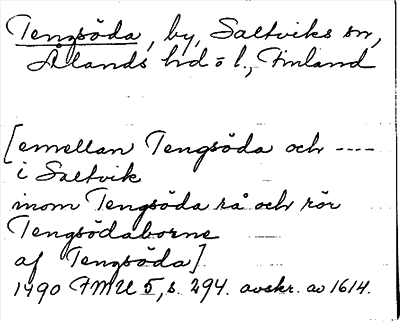 Tengsöda, by, Saltviks sn,
Ålands hd o l., Finland
[emellan Tengsöda och ----
i Saltvik
inom Tengsöda rå och rör
Tengsödaborne
af Tengsöda].
1490 FMU 5, s. 294. avskr. av 1614.